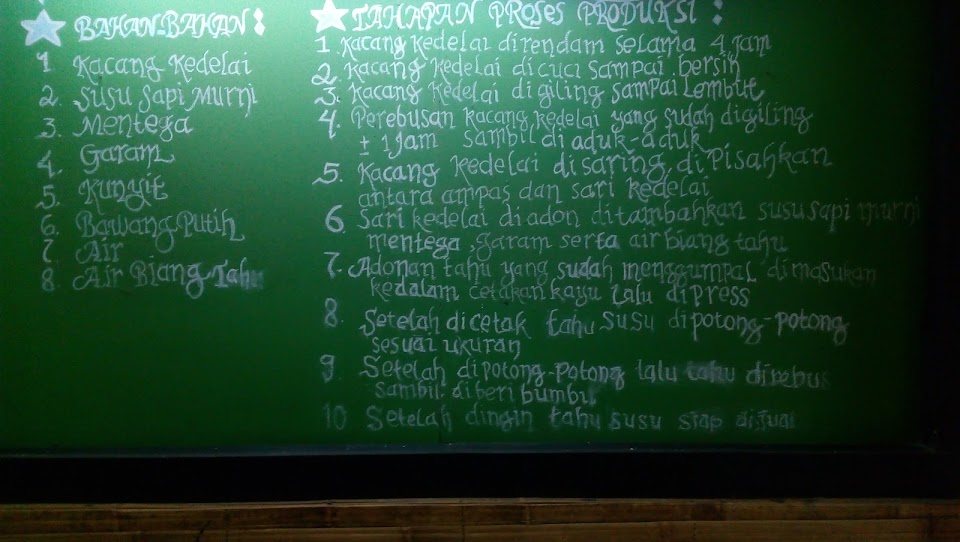 BAHAN-BAHAN :
1 Kacang Kedelai
2. Susu Sapi Murni
3. Mentega
4. Garam
5. Kunyit
6. Bawang Putih
7. Air
8. Air Biang Tahu
TAHAPAN PROSES PRODUKSI :
1. Kacang Kedelai direndam selama 4 jam
2. Kacang Kedelai dicuci sampai bersih
3. Kacang Kedelai digiling sampai lembut
4. Perebusan kacang kedelai yang sudah digiling
± 1 Jam sambil di aduk-aduk
5. Kacang Kedelai disaring, di Pisahkan
antara ampas dan sari kedelai
6. Sari kedelai di adon ditambahkan susu sapi murni
mentega, garam serta air biang tahu
7. Adonan tahu yang sudah menggumpal dimasukan
kedalam cetakan kayu lalu dipress
8. Setelah dicetak tahu susu dipotong-potong
sesuai ukuran
9. Setelah dipotong-potong lalu tahu direbus
sambil diberi bumbu
10 Setelah dingin tahu susu siap dijual